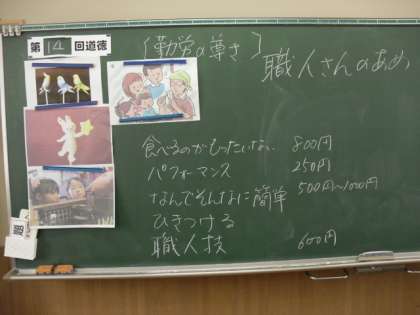 第14回道徳
［勤労の尊さ］
職人さんのあめ
食べるのがもったいない 800円
パフォーマンス 250円
なんでそんなに簡単 500円〜1000円
ひきつける
職人技 600円